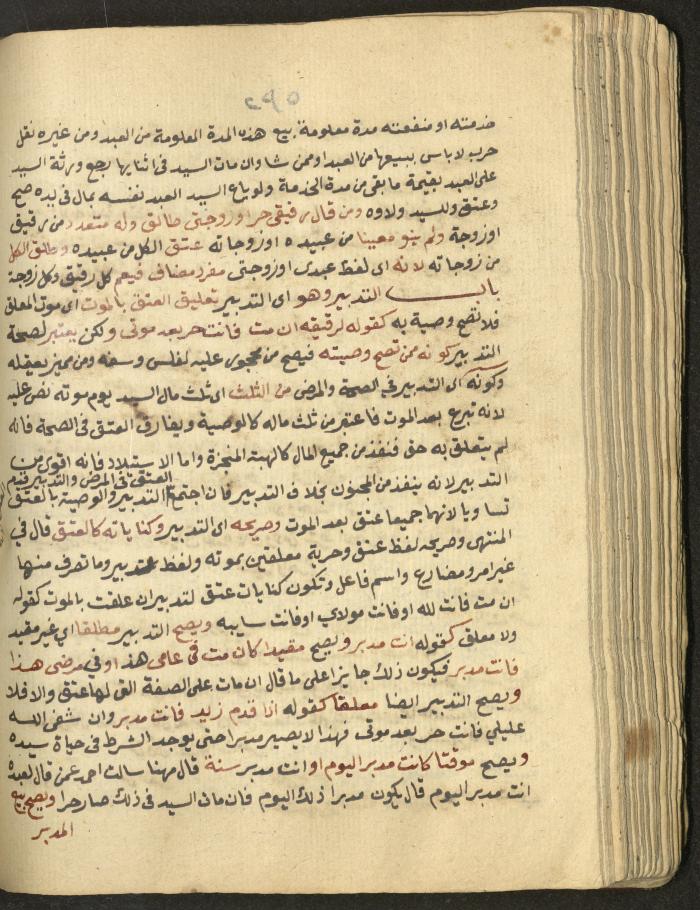 ٢٩٥
خدمته او منفعته مدة معلومة بيع هذه المدة المعلومة من العبد ومن غيره نقل
حرب لا باس ببيعها من العبد او ممن شا وان مات السيد في اثنايها رجع ورثة السيد
على العبد بقيمة ما بقي من مدة الخدمة ولو باع السيد العبد نفسه بمال في يده صح
وعتق وللسيد ولاوه ومن قال رقيقي حر او زوجتي طالق وله متعدد من رقيق
او زوجة ولم ينو معينا من عبيده او زوجاته عتق الكل من عبيده وطلق الكل
من زوجاته لانه اى لفظ عبدى او زوجتي مفرد مضاف فيعم كل رقيق وكل زوجة
باب التدبير وهو اى التدبير تعليق العتق بالموت اى موت المعلق
فلا تصح وصية به كقوله لرقيقه ان مت فانت حر بعد موتي ولكن يعتبر لصحة
التدبير كونه ممن تصح وصيته فيصح من محجور عليه لفلس وسفه ومن مميز يعقله
وكونه اى التدبير في الصحة والمرض من الثلث اى ثلث مال السيد يوم موته نص عليه
لانه تبرع بعد الموت فاعتبر من ثلث ماله كالوصية ويفارق العتق في الصحة فانه
لم يتعلق به حق فنفذ من جميع المال كالهبة المنجزة واما الاستيلاد فانه اقوى من
التدبير لانه ينفذ من المجنون بخلاف التدبير فان اجتمع العتق في المرض والتدبير قدم التدبير والوصية بالعتق
تساويا لانهما جميعا عتق بعد الموت وصريحه اى التدبير وكناياته كالعتق قال في
المنتهى وصريحه لفظ عتق وحرية معلقين بموته ولفظ تدبير وما تصرف منها
غير امر ومضارع واسم فاعل وتكون كنايات عتق لتدبير ان علقت بالموت كقوله
ان مت فانت لله او فانت مولاي او فانت سايبه ويصح التدبير مطلقا اي غير مقيد
ولا معلق كقوله انت مدبر ويصح مقيدا كان مت في عامي هذا او في مرضى هذا
فانت مدبر فيكون ذلك جايزا على ما قال ان مات على الصفة التي قالها عتق والا فلا
ويصح التدبير ايضا معلقا كقوله اذا قدم زيد فانت مدبر وان شفى الله
عليلي فانت حر بعد موتي فهذا لا يصير مدبرا حتى يوجد الشرط في حياة سيده
ويصح موقتا كانت مدبر اليوم او انت مدبر سنة قال مهنا سالت احمد عمن قال لعبده
انت مدبر اليوم قال يكون مدبرا ذلك اليوم فان مات السيد في ذلك صار حرا ويصح بيع
المدبر